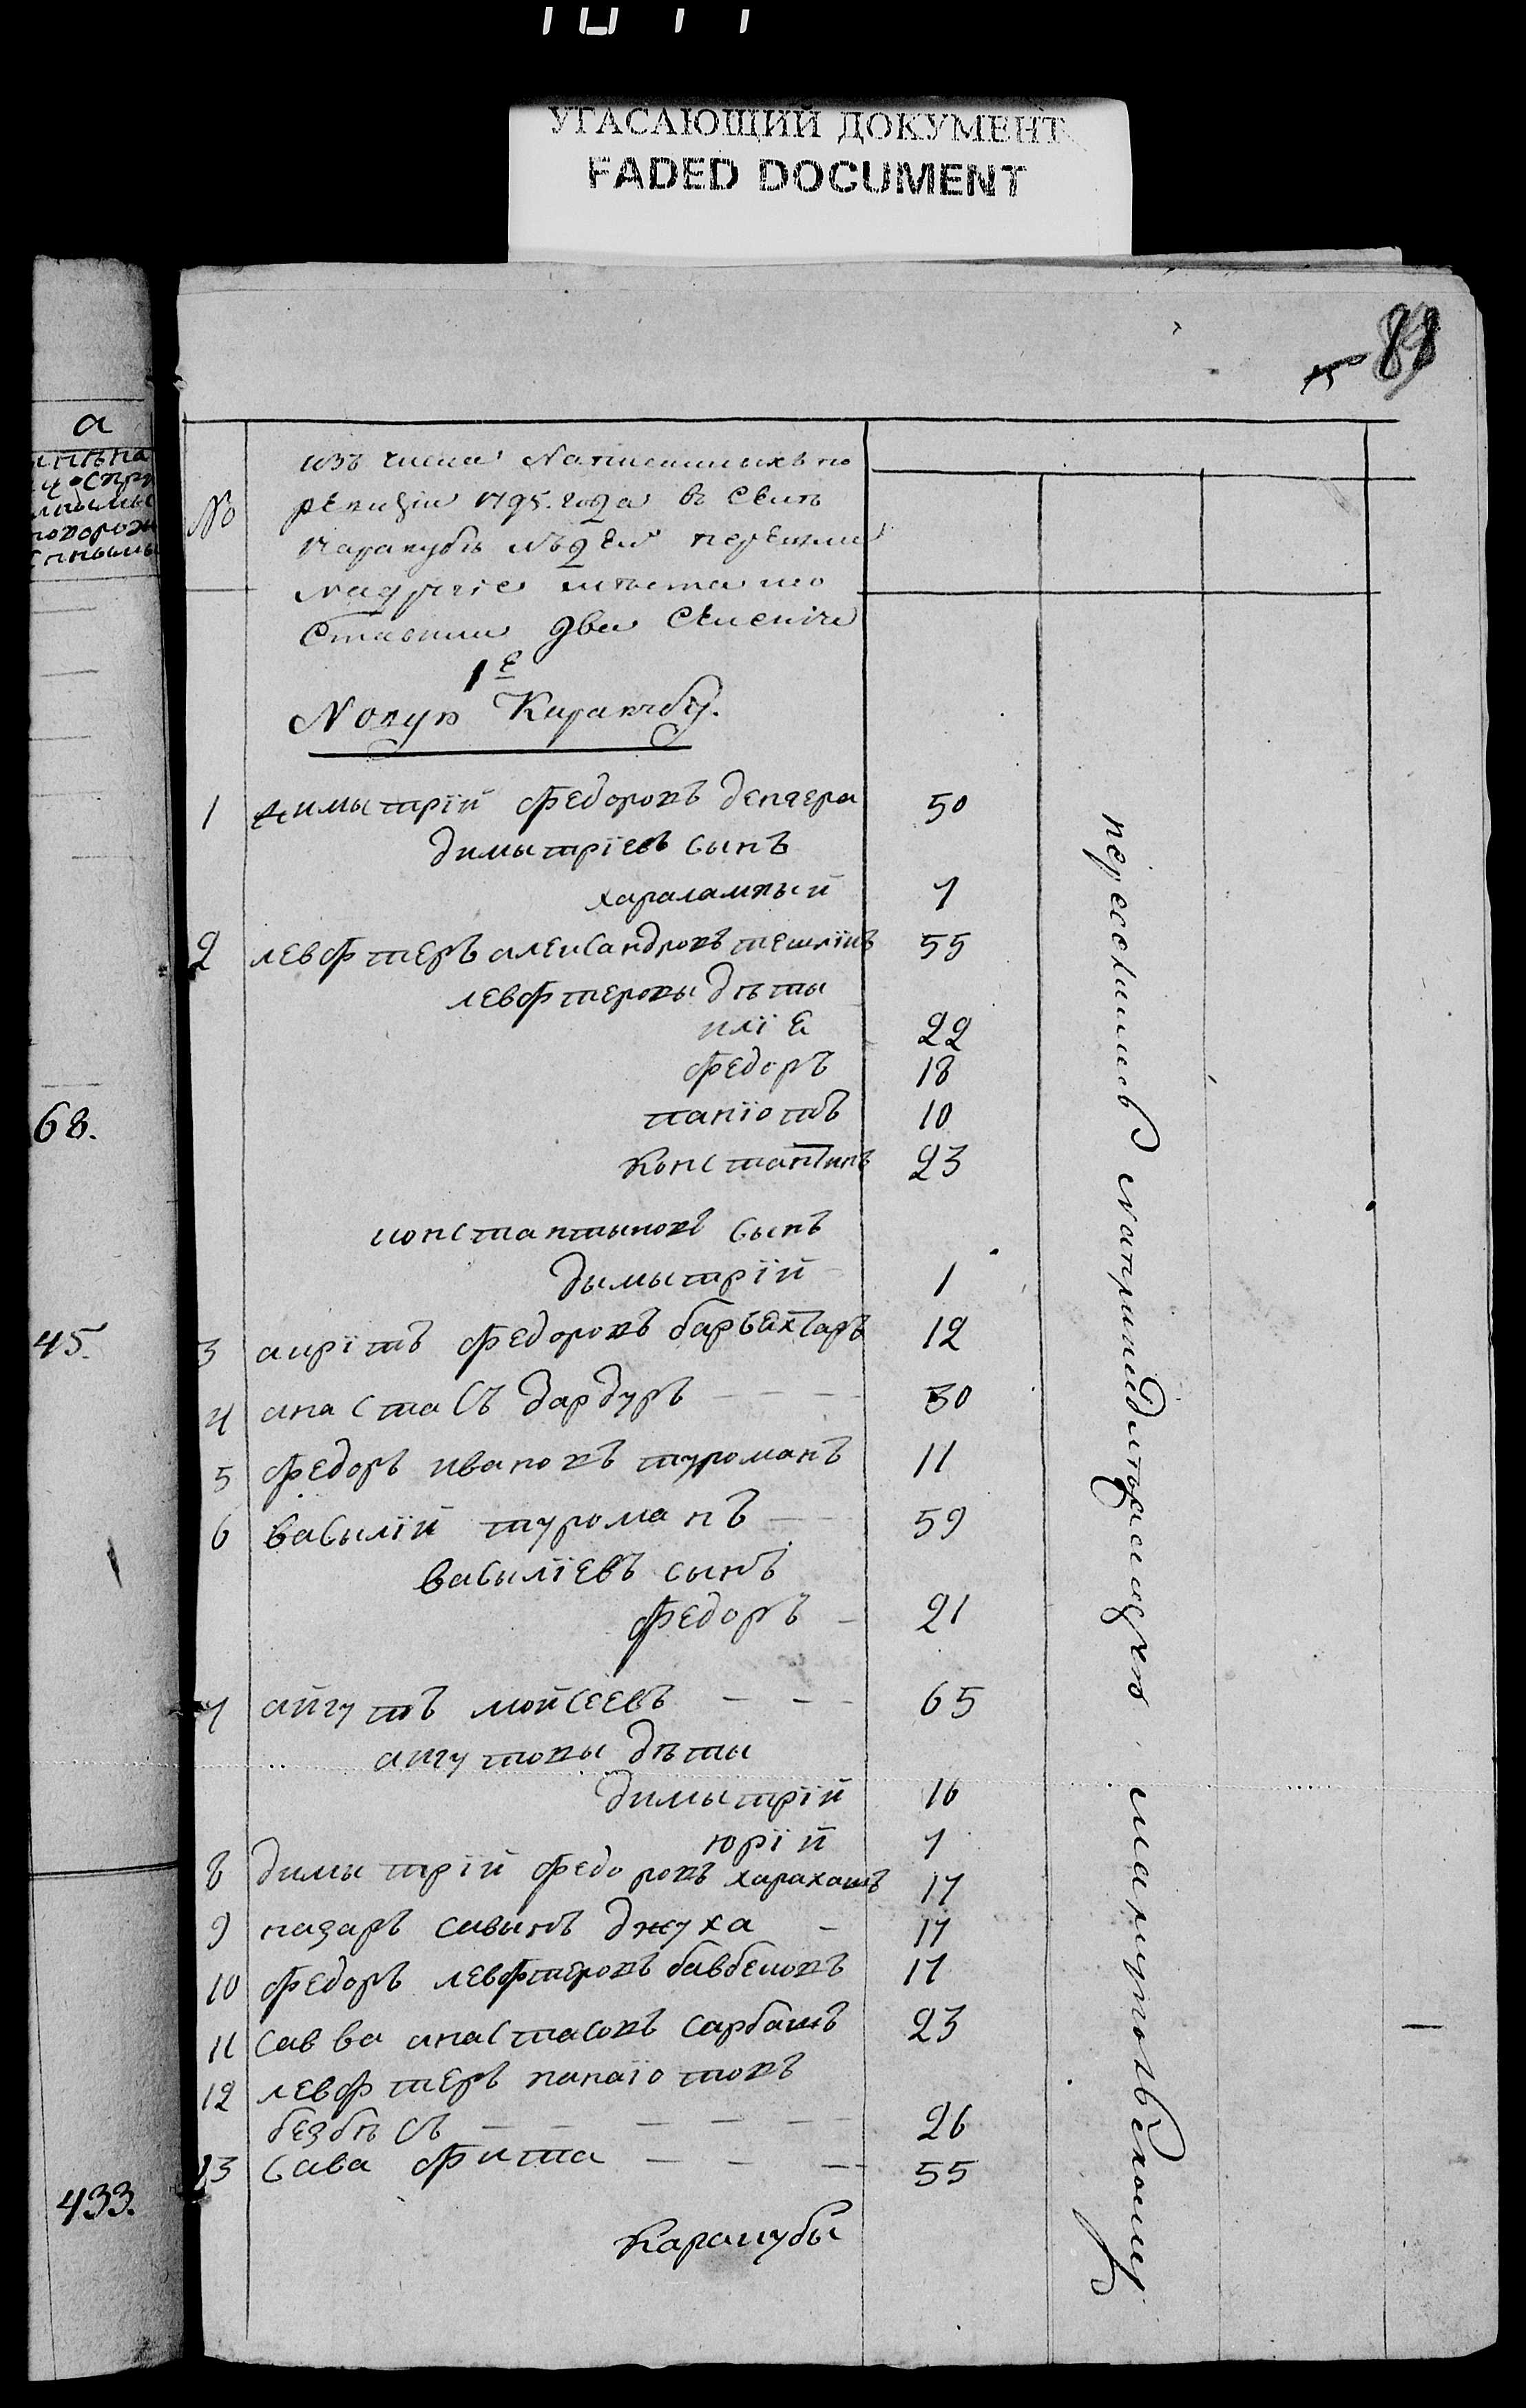 УГАСАЮЩИЙ ДОКУМЕНТ
FADED DOCUMENT
88
а
68.
45.
433.
№
изъ числа написанныхъ по
ревизіи 1795. года въ Селѣ
Каракубѣ людей перешли
на другіе мѣста и со
ставили два Селенія
1Е
Новую Каракубу.
1 димытрій федоровъ депчера 50
димытріевъ сынъ
харалампый 7
2 левфтеръ александровъ тешлікъ 55
левфтеровы дѣты
иліе 22
федоръ 18
паніотъ 10
константинъ 23
константыновъ сынъ
дымытрій 1
3 кирікъ федоровъ 12
4 анастасъ дардуръ 30
5 федоръ ивановъ туроманъ 11
6 васылій туроманъ 59
васыліевъ сынъ
федоръ 21
7 айгутъ мойсеевъ 65
айгутовы дѣты
димытрій 16
юрій 7
8 димытрій федоровъ харахашъ 17
9 назаръ савынъ джуха 17
10 федоръ левфтеровъ 17
11 савва анастасовъ сарбашъ 23
12 левфтеръ панаіотовъ
безбѣсъ 26
13 сава фита 55
Каракубы
переселились
маріупольскому